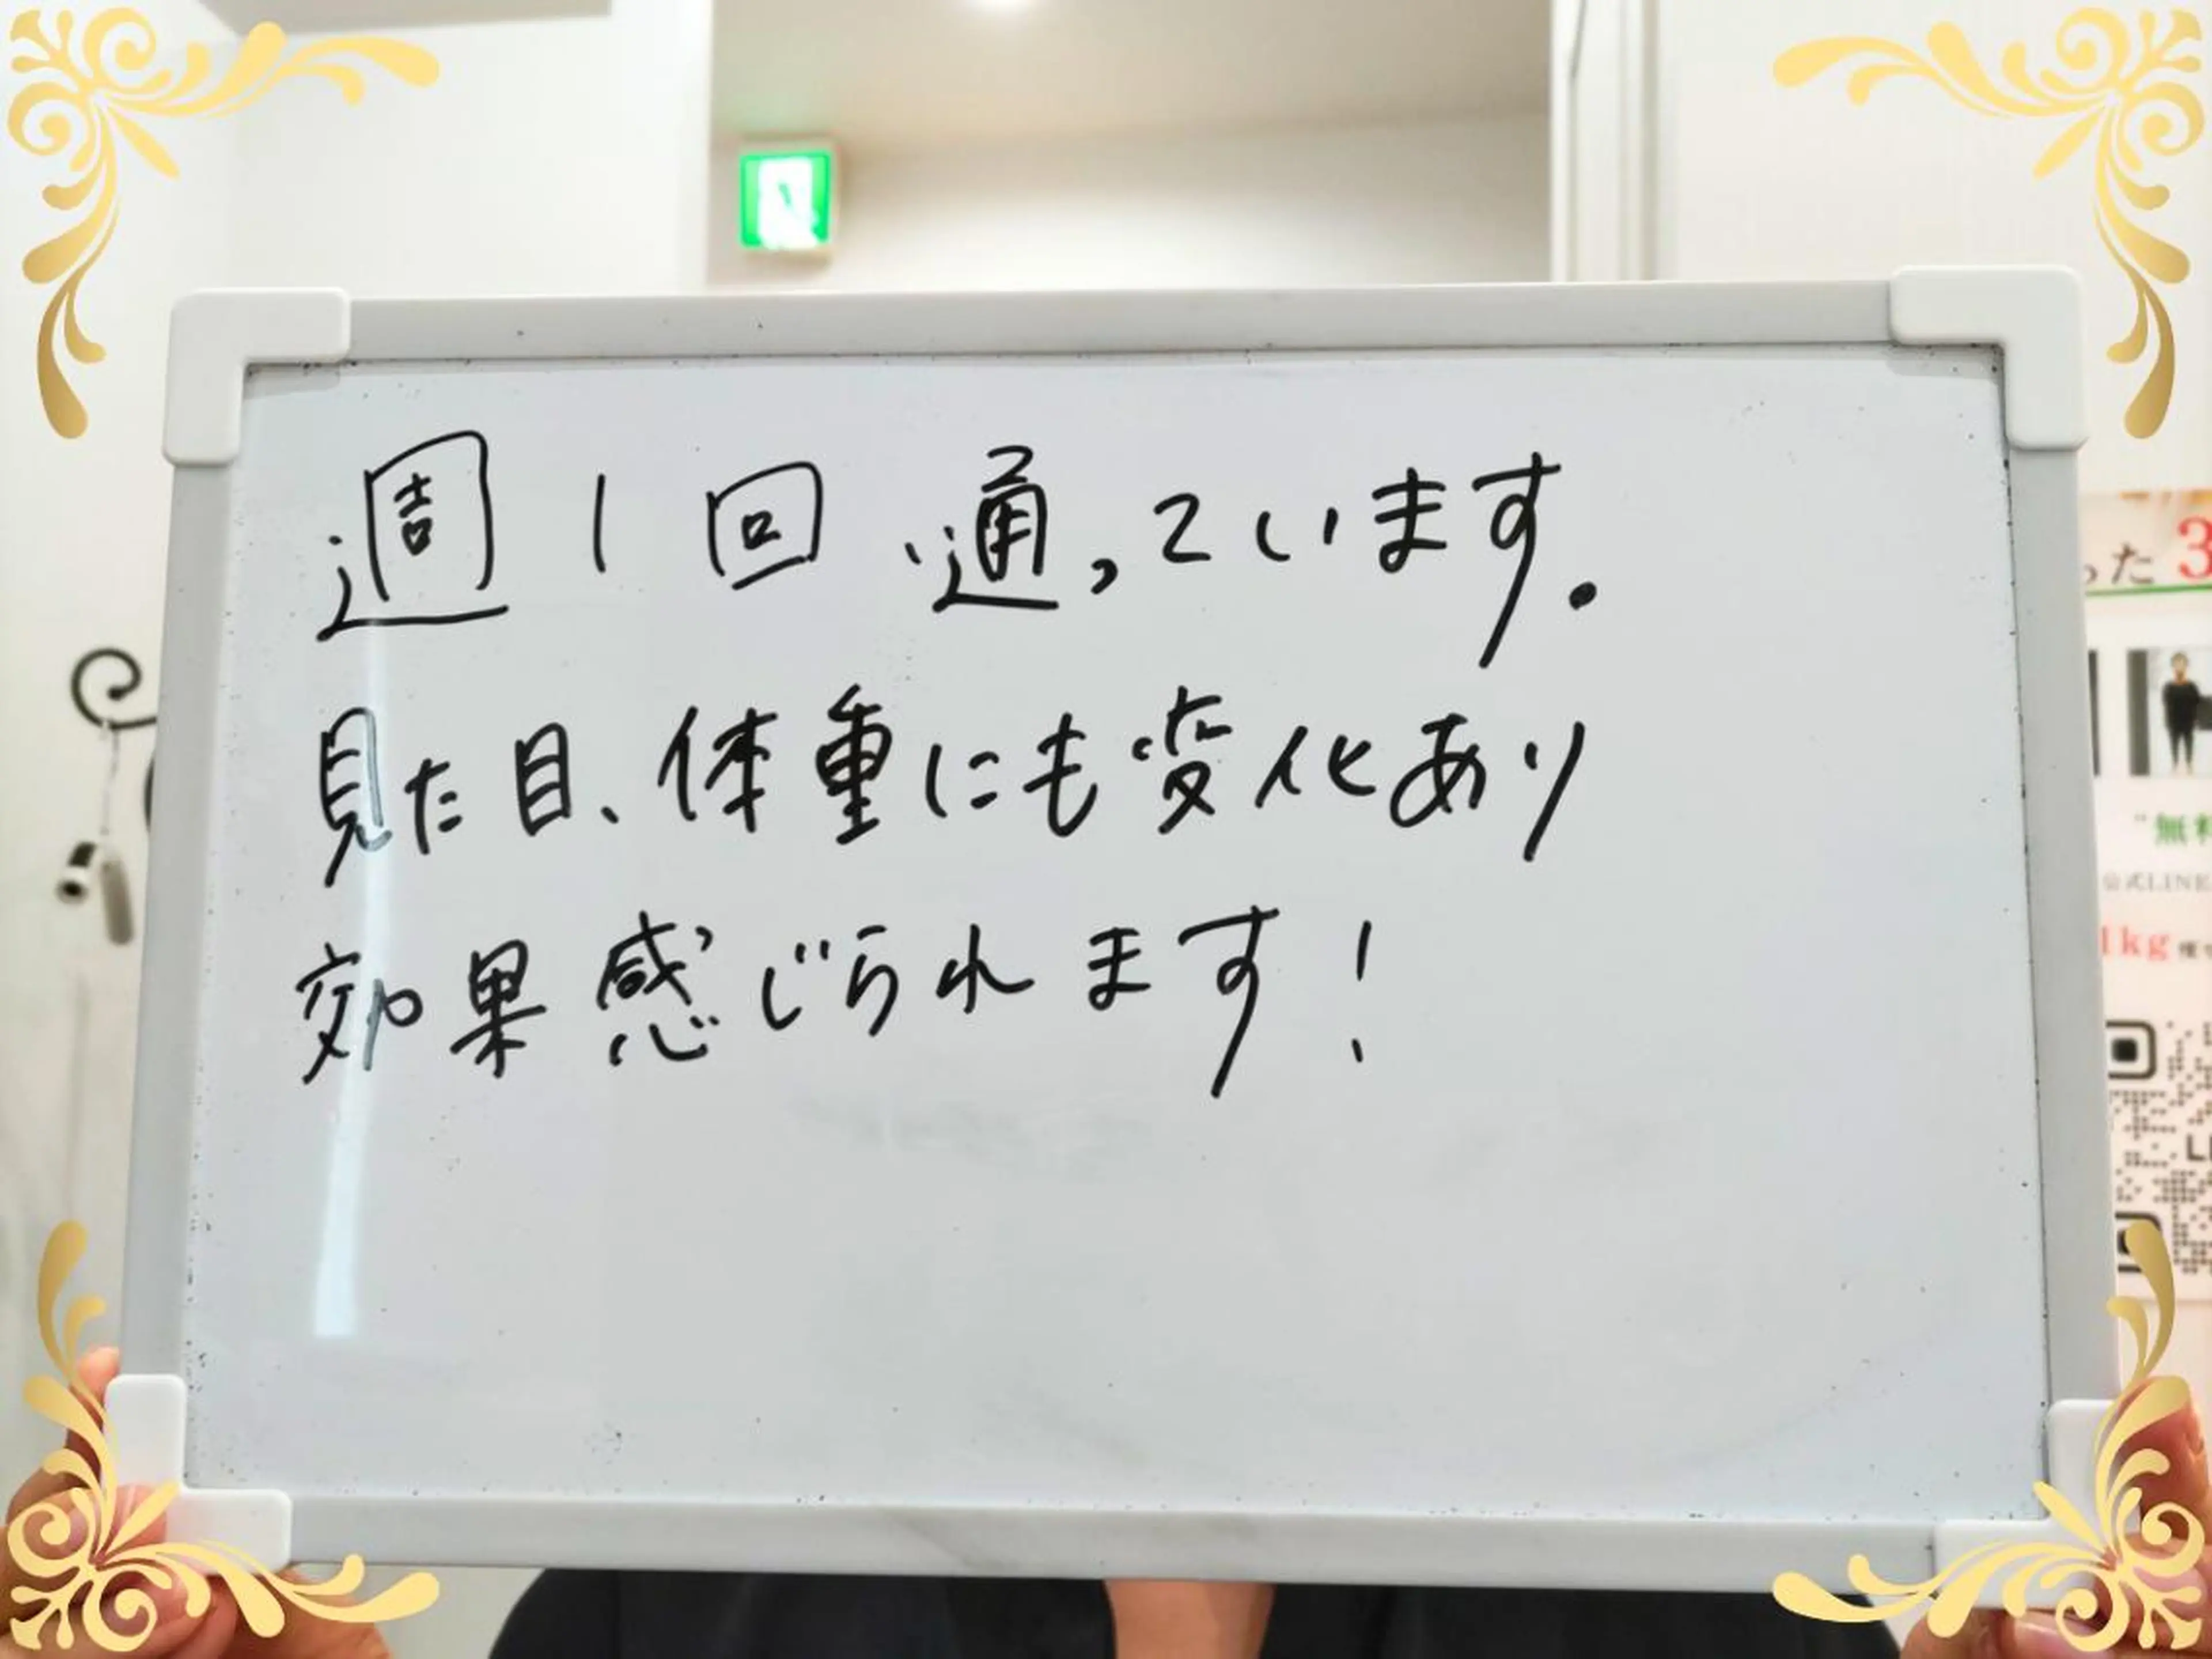 週1回通っています.
見た目、体重にも変化あり
効果感じられます!
った3
"無料
公式LINE
1kg